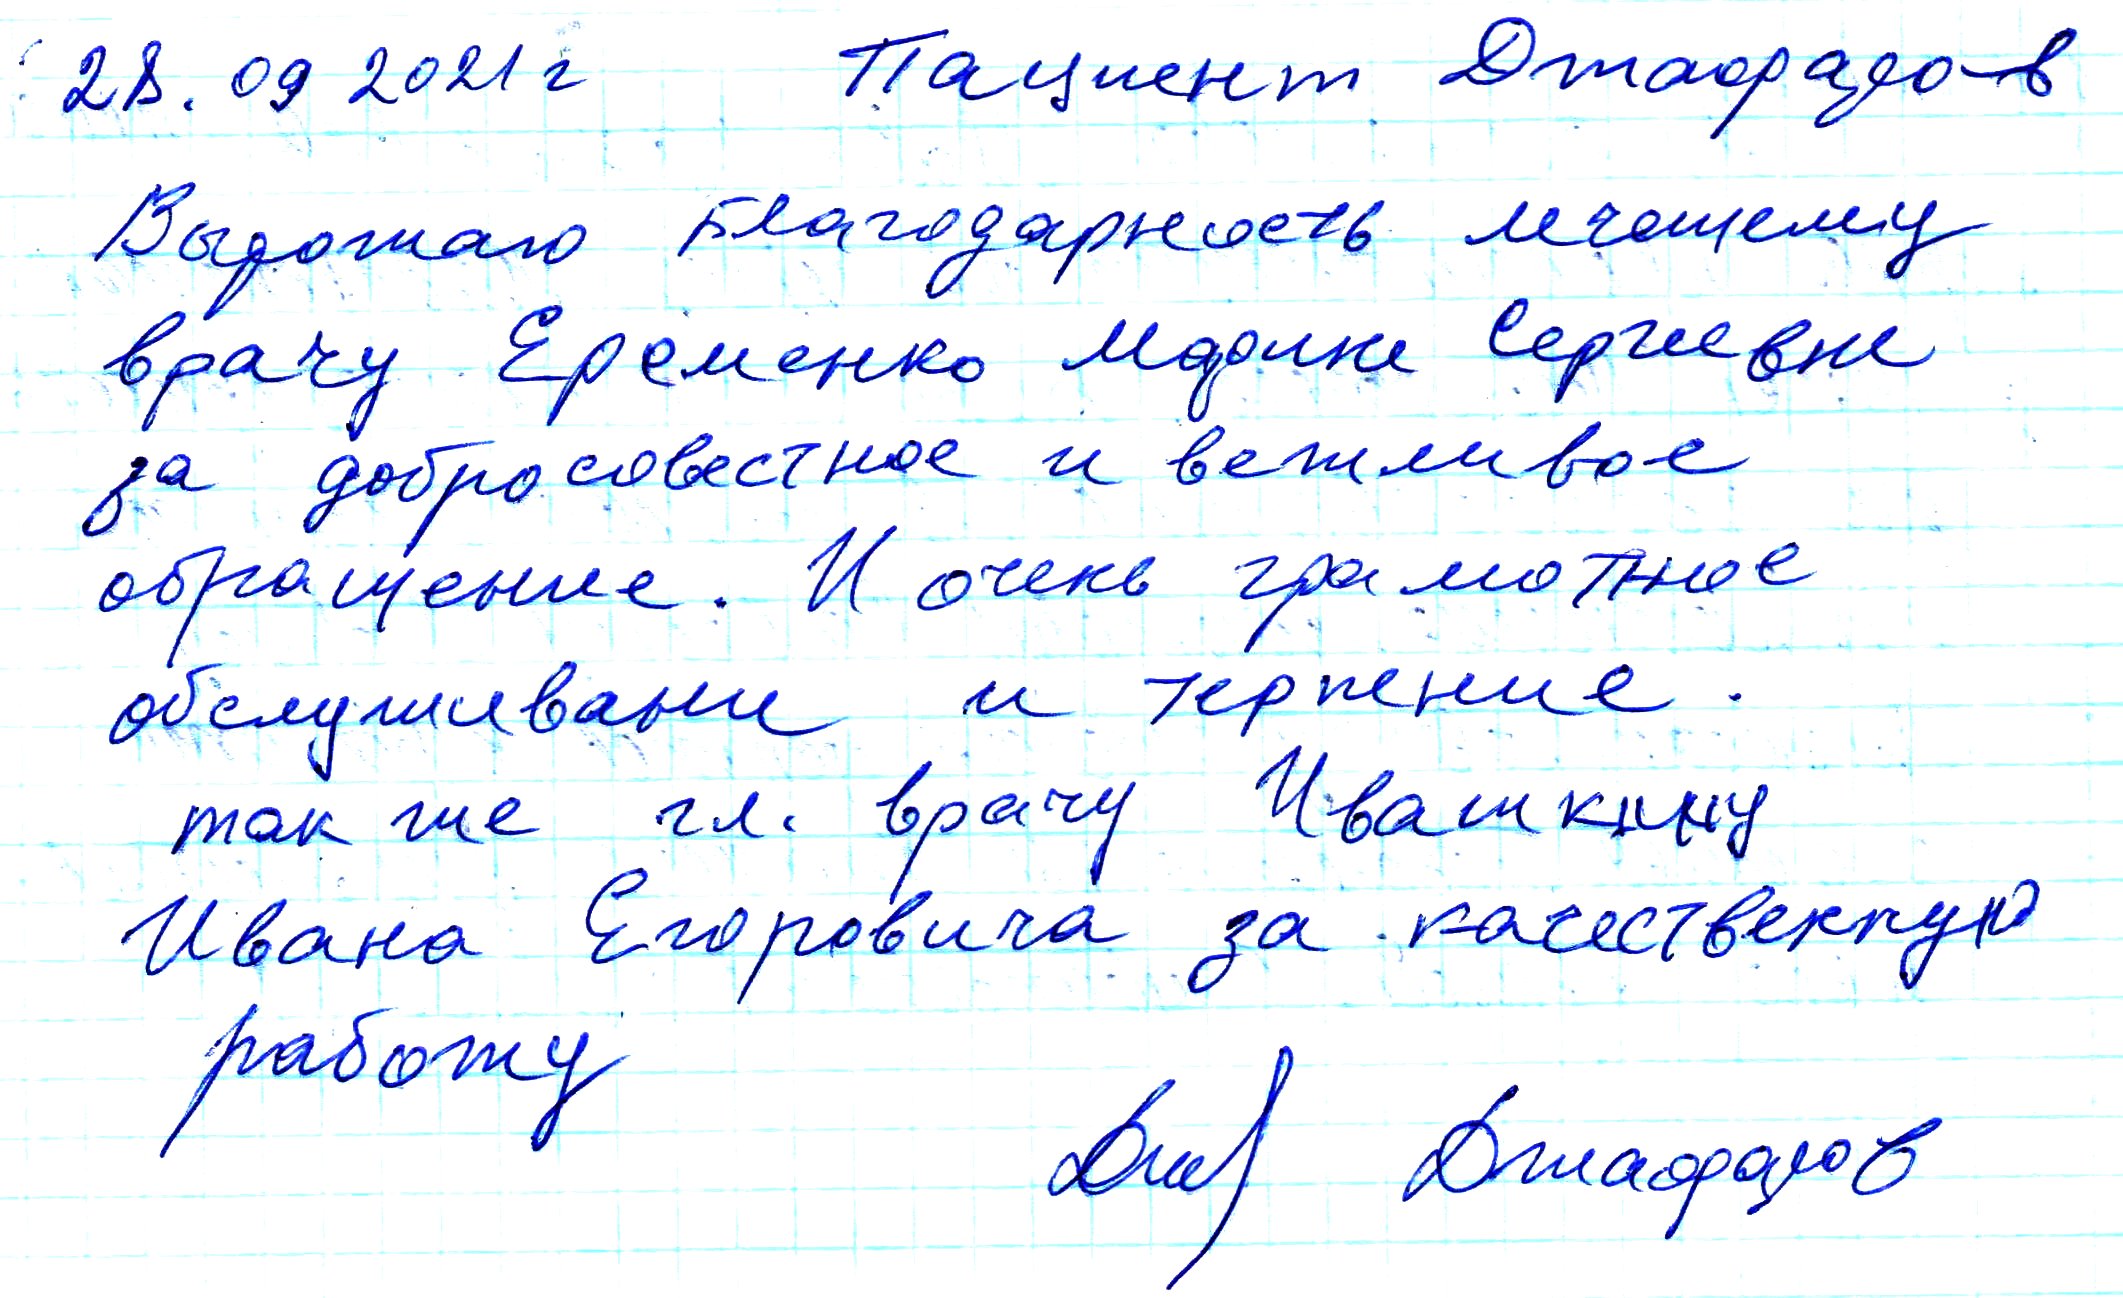 28.09 2021 г Пациент Джафаров
Выражаю Благодарность лечащему
врачу Еременко Марине Сергеевне
за добросовестное и вежливое
обращение. И очень грамотное
обслуживани и терпение.
так же гл. врачу Ивашкину
Ивана Егоровича за качественную
работу
Джафаров